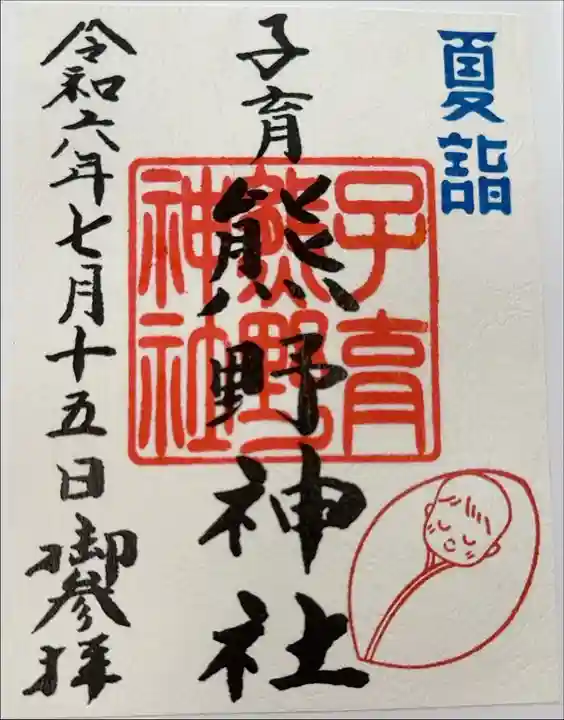 夏詣
子育
熊野神社
子育
熊野
神社
令和六年七月十五日御參拝